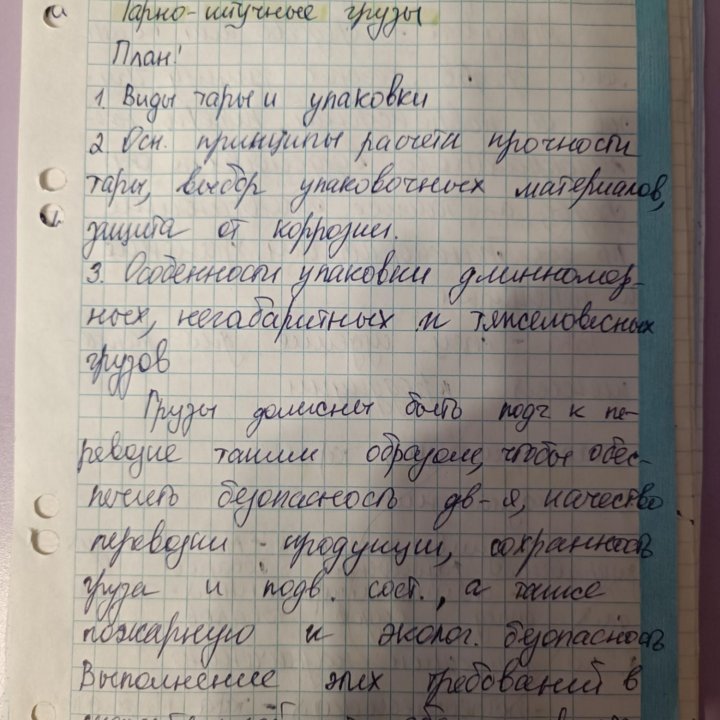 Тарно-штучные грузы
План:
1. Виды тары и упаковки
2 Осн. принципы расчета прочности
тары, выбор упаковочных материалов,
защита от коррозии.
3. Особенности упаковки длинномер-
ных, негабаритных и тяжеловесных
грузов
Грузы должны быть подг к пе-
ревозке таким образом, чтобы обес-
печить безопасность дв-я, качество
перевозки продукции, сохранность
груза и подв. сост., а также
пожарную и эколог. безопасность
Выполнение этих требований в